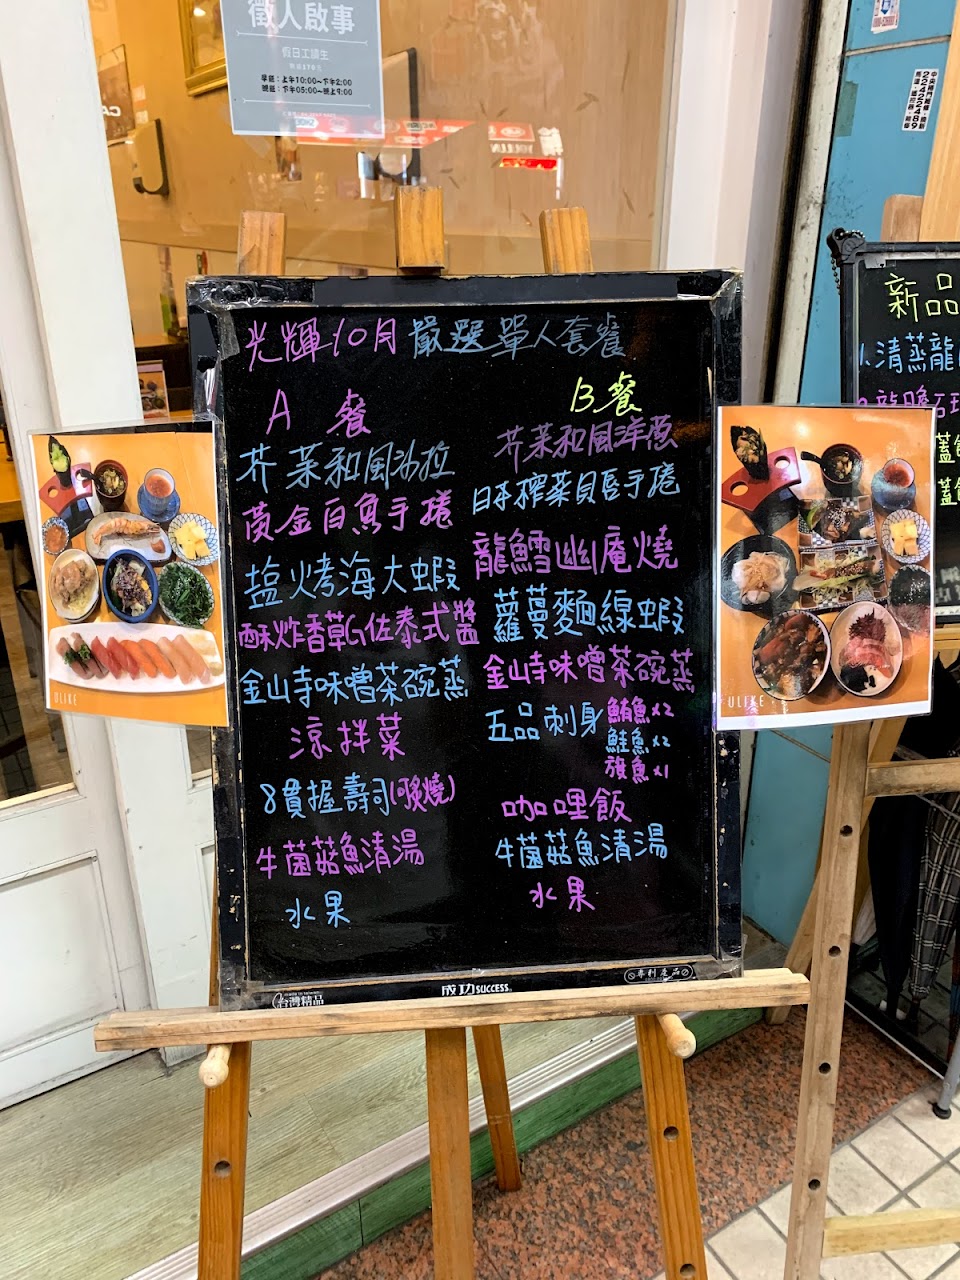 徵人啟事
假日工讀生
早班：上午10:00~下午2:00
晚班：下午05:00~晚上9:00
光輝10月嚴選單人套餐
A 餐
芥茉和風沙拉
黃金白魚手捲
塩烤海大蝦
酥炸香草G佐泰式醬
金山寺味噌茶碗蒸
涼拌菜
8貫握壽司(可炙燒)
牛菌菇魚清湯
水果
B餐
芥茉和風洋蔥
日本榨菜貝唇手捲
龍鱈幽庵燒
蘿蔓麵線蝦
金山寺味噌茶碗蒸
五品刺身
鮪魚x2
鮭魚x2
旗魚x1
咖哩飯
牛菌菇魚清湯
水果
ULIKE
ULIKE
新品
1.清蒸龍
台灣精品
成功SUCCESS
專利產品